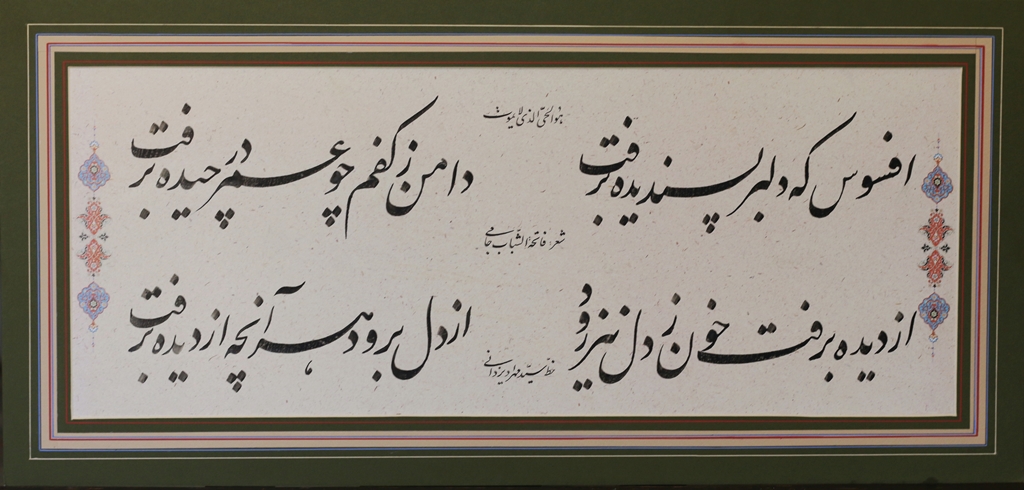 هو الحی الذی لا یموت
افسوس که دلبر پسندیده برفت
دامن ز کفم چو عمر درچیده برفت
شعر: فاتحة الشباب جامی
از دیده برفت خون ز دل نیز رود
از دل برود هر آنچه از دیده برفت
خط سید یزدانی